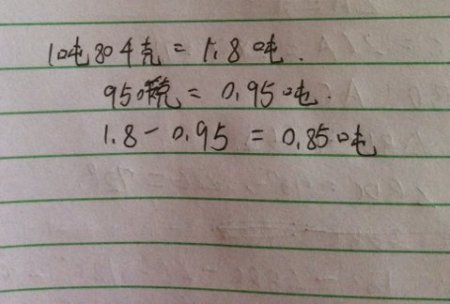 1吨804克 = 1.8吨.
950千克 = 0.95吨.
1.8 - 0.95 = 0.85吨